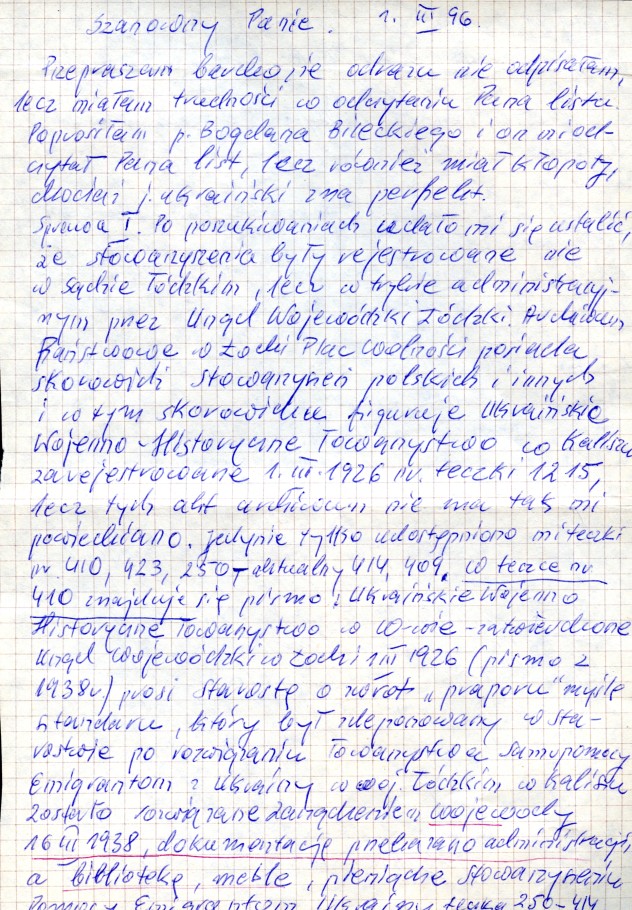 Szanowny Panie. 1. III 96.
Przepraszam bardzo, że odrazu nie odpisałam,
lecz miałam trudności w odczytaniu Pana listu.
Poprosiłam p. Bogdana Bileckiego i on mi od-
czytał Pana list, lecz również miał kłopoty,
chociaż j. ukraiński zna perfekt.
Sprawa I. Po poszukiwaniach udało mi się ustalić,
że stowarzyszenia były rejestrowane nie
w Sądzie Łódzkim, lecz w trybie administracyj-
nym przez Urząd Wojewódzki Łódzki. Archiwum
Państwowe w Łodzi Plac Wolności posiada
skorowidz stowarzyszeń polskich i innych
i w tym skorowidzu figuruje Ukraińskie
Wojenno-Historyczne Towarzystwo w Kaliszu
zarejestrowane 1. III. 1926 nr. teczki 1215,
lecz tych akt archiwum nie ma tak mi
powiedziano. Jedynie tylko udostępniono mi teczki
nr. 410, 423, 250 – aktualny 414, 409. w teczce nr
410 znajduje się pismo: Ukraińskie Wojenno
Historyczne Towarzystwo w W-wie - zatwierdzone
Urząd Wojewódzki w Łodzi 1 III 1926 (pismo z
1938r) prosi Starostę o zwrot „praporu" myślę
sztandaru, który był zdeponowany w sta-
rostwie po rozwiązaniu Towarzystwa Samopomocy
Emigrantom z Ukrainy w woj. Łódzkim w Kaliszu
zostało rozwiązane zarządzeniem wojewody
16 III 1938, dokumentację przekazano administracji,
a bibliotekę, meble, pieniądze stowarzyszeniu
Pomocy Emigrantom Ukrainy teczka 250-414